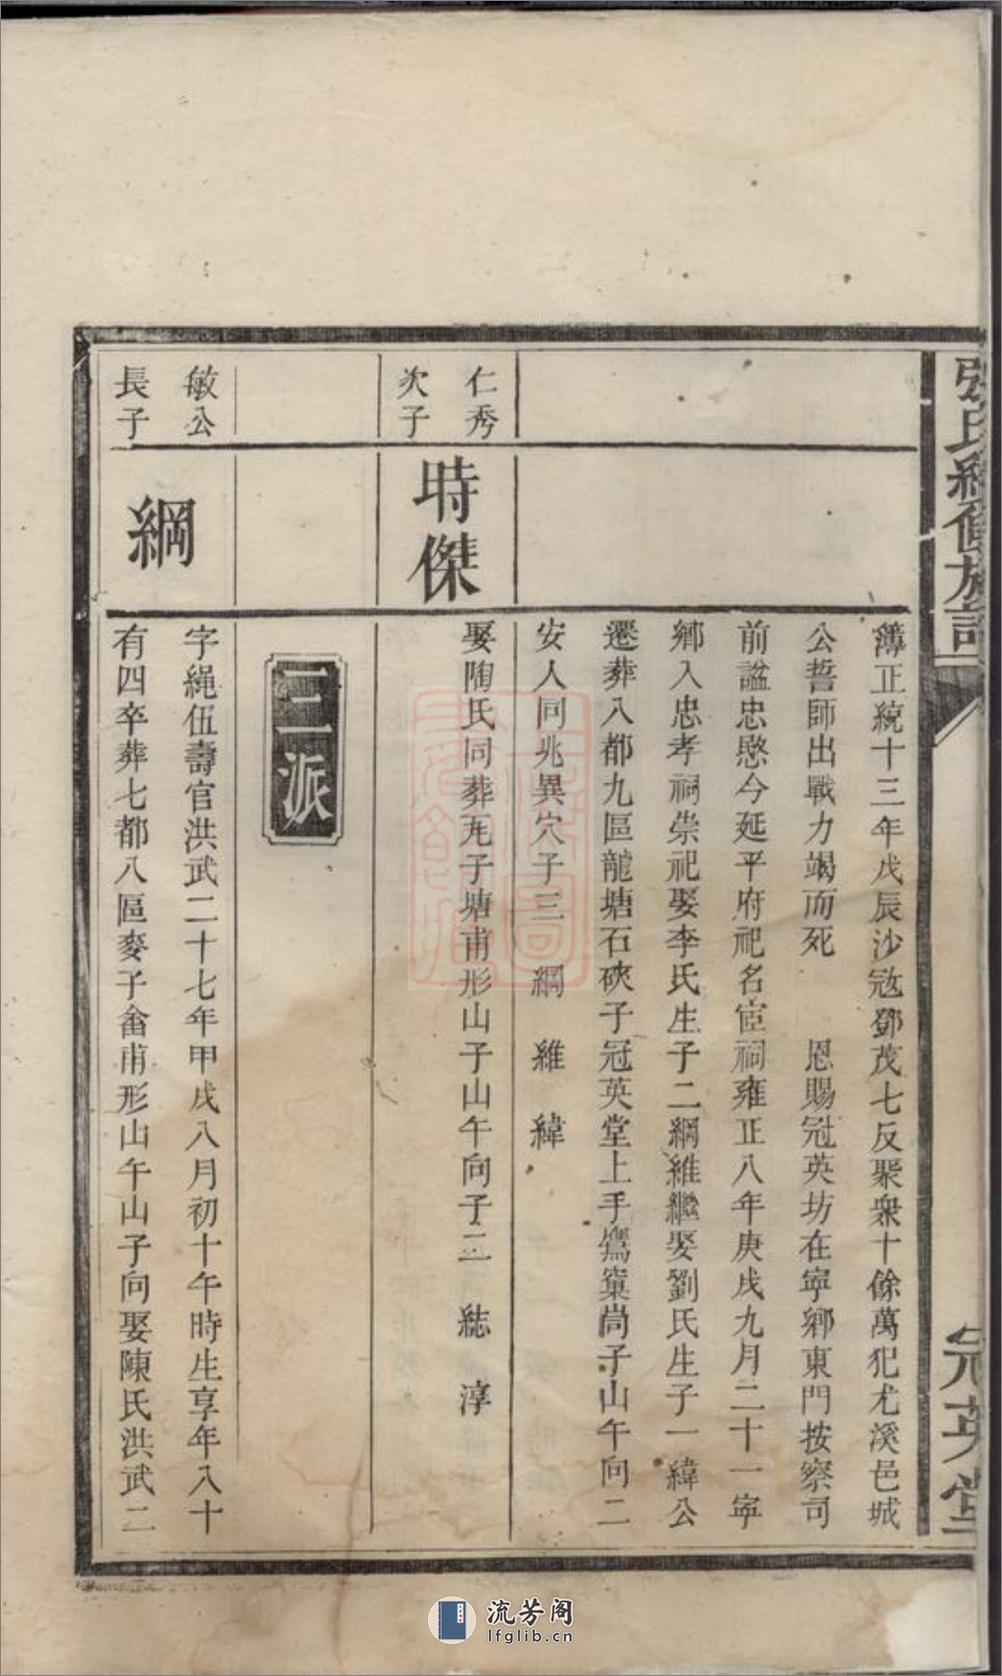 張氏續修族譜
冠英堂
簿正統十三年戊辰沙冦鄧茂七反聚衆十餘萬犯尤溪邑城
公誓師出戰力竭而死　恩賜冠英坊在寧鄉東門按察司
前謚忠愍今延平府祀名宦祠雍正八年庚戌九月二十一寧
鄉入忠孝祠崇祀娶李氏生子二綱維繼娶劉氏生子一緯公
遷葬八都九區龍塘石硤子冠英堂上手鷹窠崗子山午向二
安人同兆異穴子三　綱　維　緯
仁秀
次子
時傑
娶陶氏同葬瓦子塘甫形山子山午向子二　綕　淳
三派
敏公
長子
綱
字繩伍壽官洪武二十七年甲戌八月初十午時生享年八十
有四卒葬七都八區麥子畬甫形山午山子向娶陳氏洪武二
流芳阁
lfglib.cn